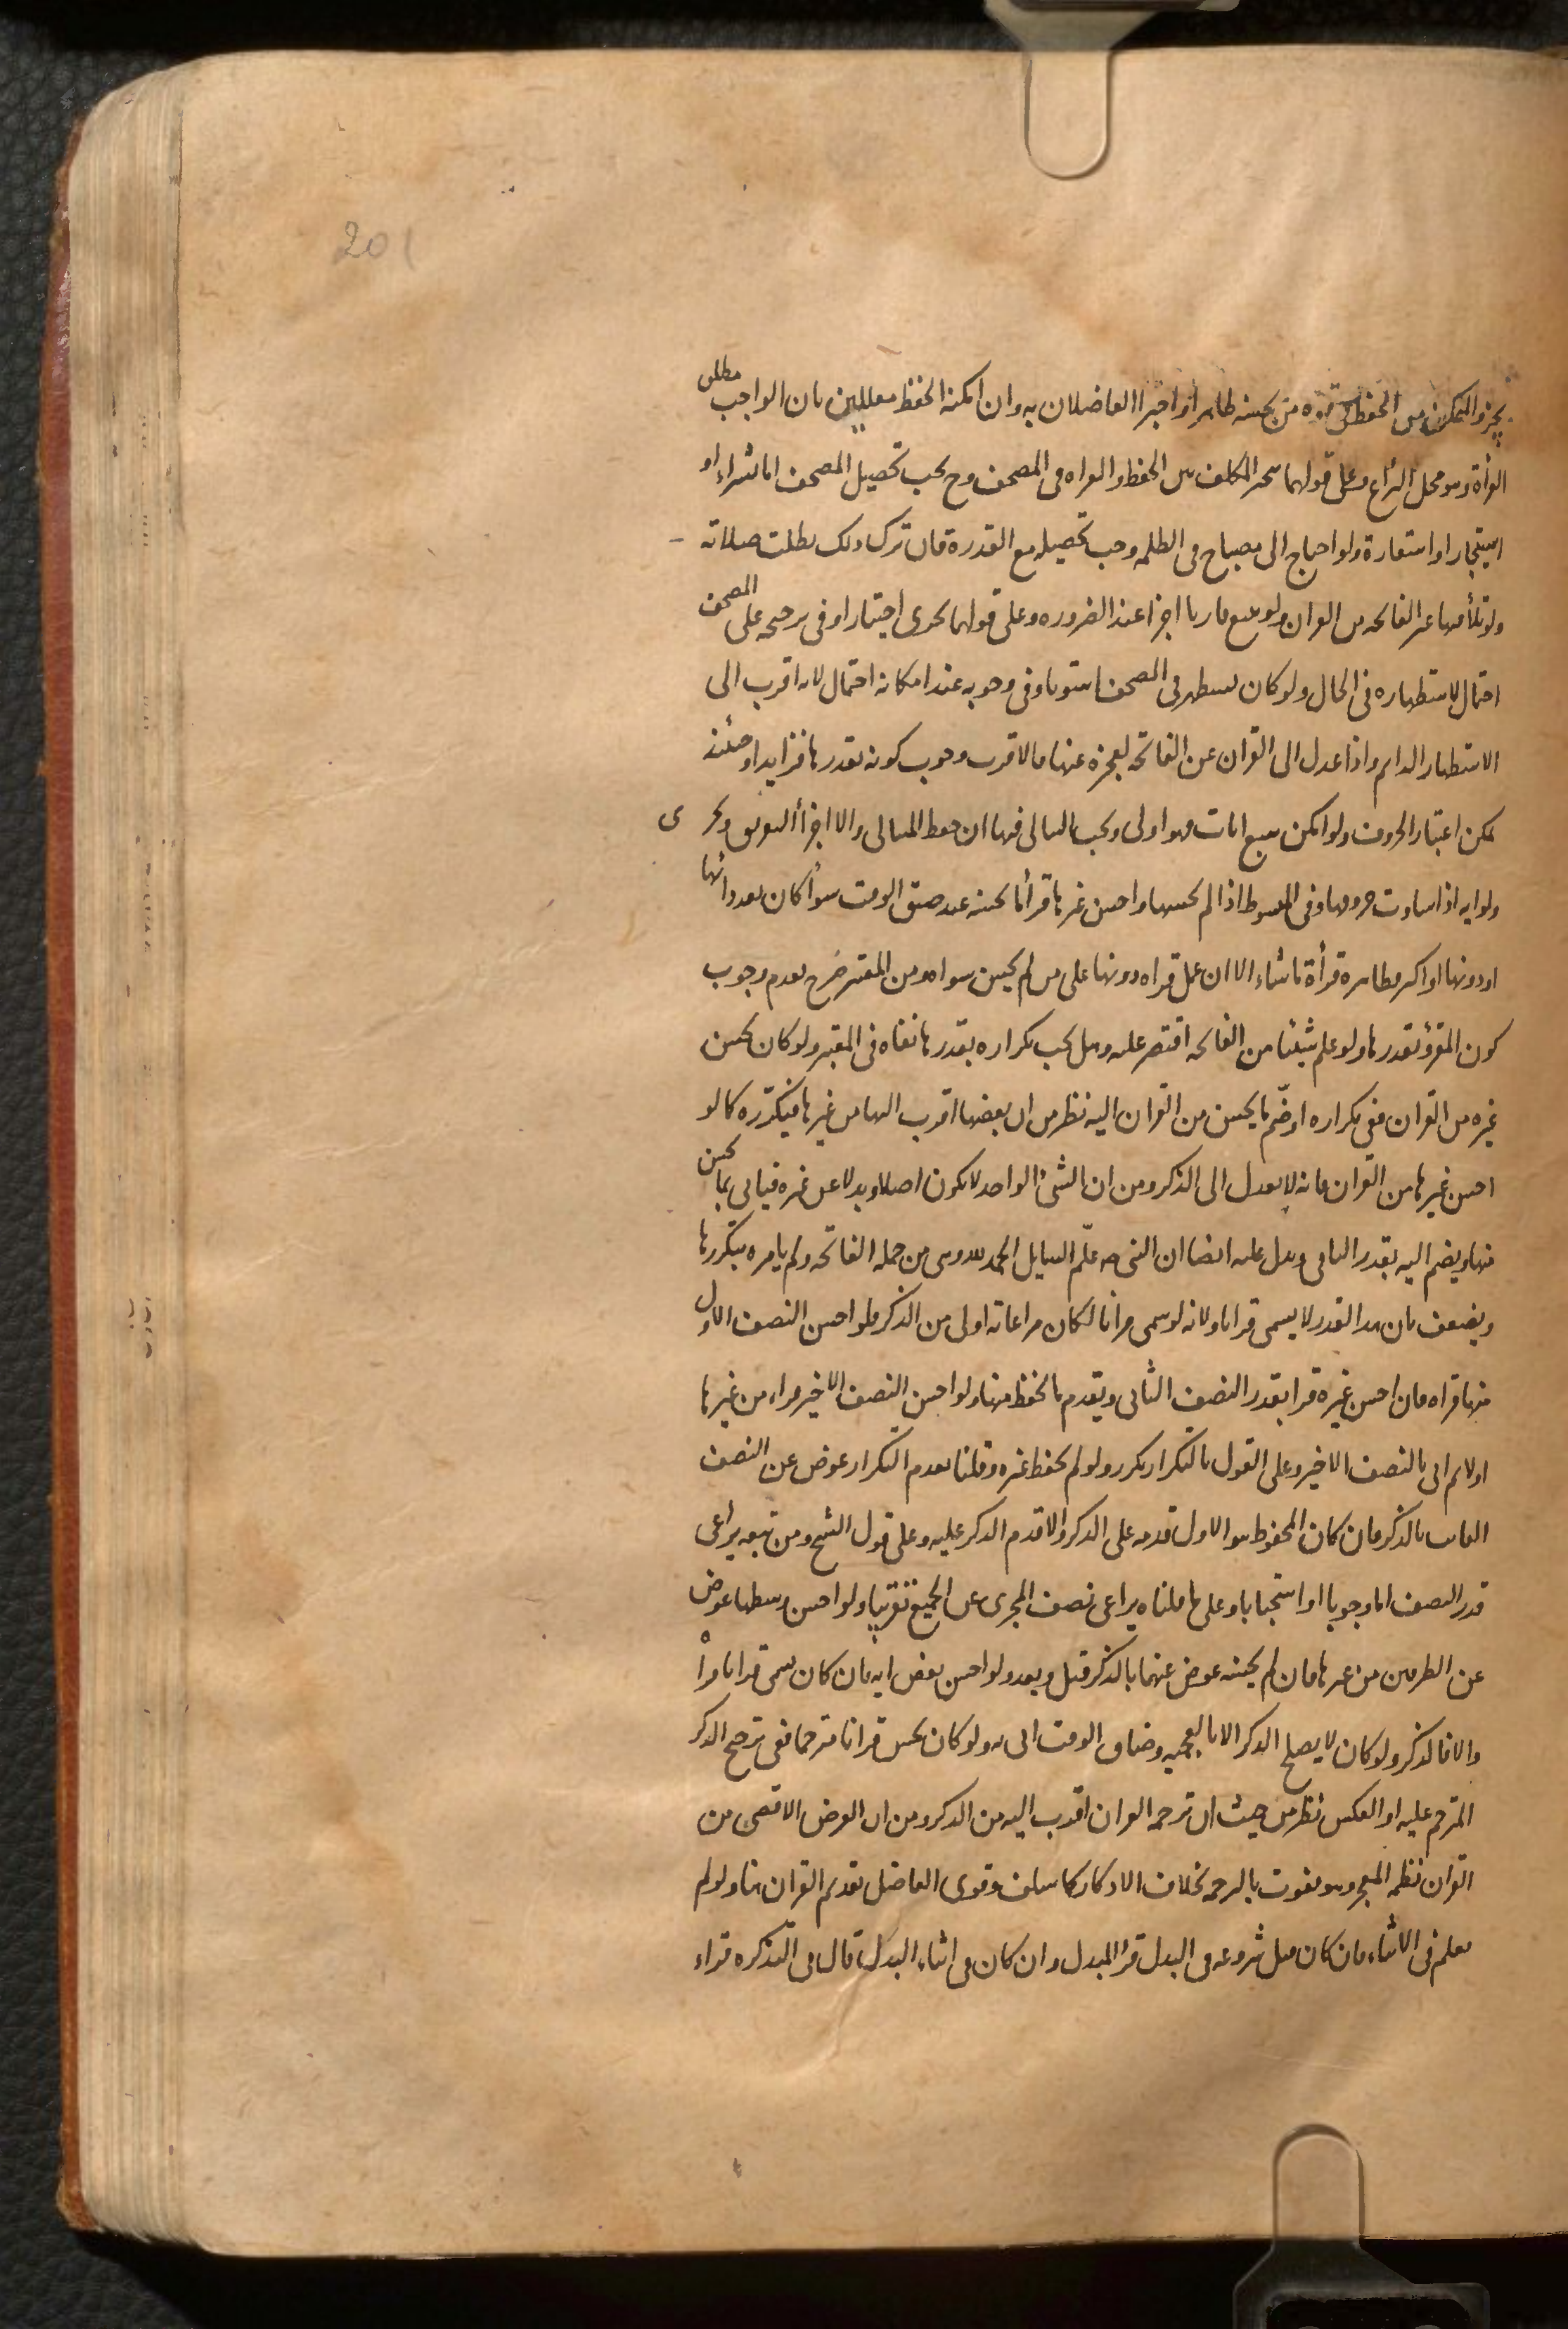 201
يجز والتمكن من الحفظ من يحسنه ظاهرا واجتزا الفاضلان به وان امكنه الحفظ معللين بان الواجب مطلق
القرأة وهو محل النزاع وعلى قولهما يتخير المكلف بين الحفظ والقراه في المصحف وح يجب تحصيل المصحف اما بشراء او
استيجار او استعارة ولو احتاج الى مصباح في الظلمه وجب تحصيله مع القدرة فان ترك ذلك بطلت صلاته
ولو عجز الفاتحه من القران ولو تتبع قاريا اجزا عند الضروره وعلى قولهما يجزى اختيارا وفى ترجيحه على المصحف
احتمال لاستظهاره فى الحال ولو كان يستظهر فى المصحف استويا وفى وجوبه عند امكانه احتمال لانه اقرب الى
الاستظهار الدايم واذا عدل الى القران عن الفاتحه لعجزه عنها فالاقرب وجوب كونه بقدرها فزايدا وحينئذ
يمكن اعتبار الحروف ولو امكن سبع ايات فهو اولى ويجب التوالى فيها ان حفظ المتوالى والا اجزأ التفريق ويجزى
ولو ايه اذا ساوت حروفها وفى المبسوط اذا لم يحسنها واحسن غيرها قرأ ما يحسنه عند ضيق الوقت سواء كان بعدد اياتها
او دونها او اكثر فظاهره قرأة ما شاء الا ان يحمل قراه دونها على من لم يحسن سواه ومن المعتبر خرج بعدم وجوب
كون المقرؤ بقدرها ولو علم شيئا من الفاتحه اقتصر عليه وهل يجب تكراره بقدرها نفاه فى المعتبر ولو كان يحسن
غيره من القران ففى تكراره او ضم ما يحسن من القران اليه نظر من ان بعضها اقرب اليها من غيرها فيتكرره كما لو
احسن غيرها من القران فانه لا يعدل الى الذكر ومن ان الشئ الواحد لا يكون اصلا وبدلا عن غيره فياتى بما يحسن
منها ويضم اليه بقدر الباقى ويدل عليه ايضا ان النبى صه علم السايل الحمد لله وهى من جمله الفاتحه ولم يامره بتكررها
ويضعف بان هذا القدر لا يسمى قرانا ولانه لو سمى قرانا لكان مراعاته اولى من الذكر فلو احسن النصف الاول
منها قراه فان احسن غيره قرا بقدر النصف الثانى ويقدم ما يحفظ منها ولو احسن النصف الاخير قراء من غيرها
اولا ثم اتى بالنصف الاخير وعلى القول بالتكرار يكرر ولو لم يحفظ غيره وقلنا بعدم التكرار عوض عن النصف
الفايت بالذكر فان كان المحفوظ هو الاول قدمه على الذكر والا قدم الذكر عليه وعلى قول الشيخ ومن تبعه يراعى
قدر النصف اما وجوبا او استحبابا وعلى ما قلناه يراعى نصف المجزى عن الجميع تقريبا ولو احسن وسطها عوض
عن الطرفين من غيرها فان لم يحسنه عوض عنهما بالذكر قبل وبعد ولو احسن بعض ايه فان كان يسمى قرانا قرأ
والا فالذكر ولو كان لا يصلح الذكر الا بالعجميه وضاق الوقت اتى به ولو كان يحسن قرانا مترجما ففى ترجيح الذكر
المترجم عليه او العكس نظر من حيث ان ترجمه القران اقرب اليه من الذكر ومن ان الغرض الاقصى من
القران نظمه المعجز وهو يفوت بالترجمه بخلاف الاذكار كما سلف وقوى الفاضل تقديم القران هنا ولو لم
يعلم فى الاثناء فان كان قبل شروعه فى البدل قرا المبدل وان كان فى اثناء البدل قال فى التذكره قراء